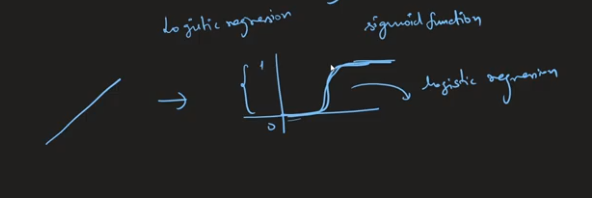 Logistic regression
sigmoid function
1
logistic regression
0